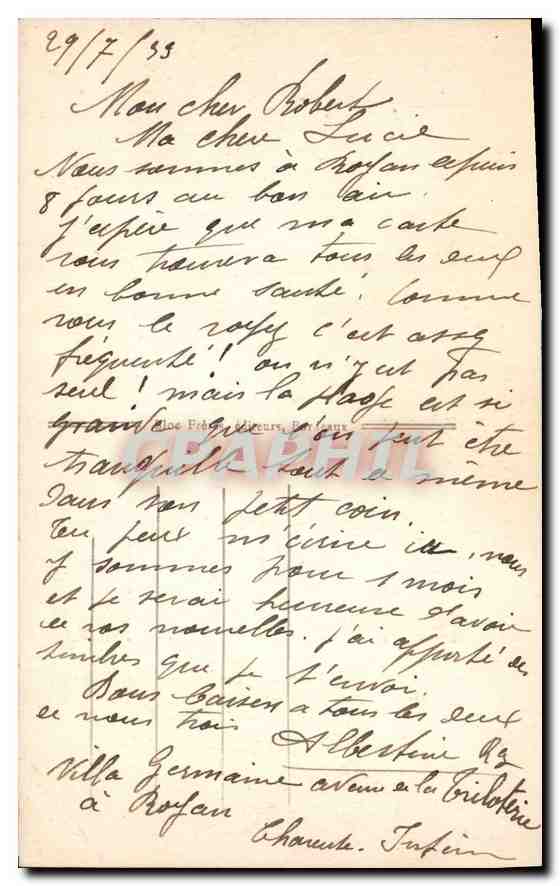 29/7/33
Mon cher Robert
Ma chere Lucie
Nous sommes à Royan depuis
8 jours au bon air.
J'espère que ma carte
vous trouvera tous les deux
en bonne santé. Comme
vous le voyez c'est assez
fréquenté! on n'y est pas
seul! mais la plage est si
grande que l'on peut être
Bloc Frères, éditeurs, Bordeaux
CPAPHIL
tranquille tout de même
dans son petit coin.
Tu peux m'écrire ici, nous
y sommes pour 1 mois
et je serai heureuse d'avoir
de vos nouvelles. j'ai apporté des
timbres que je t'envoi.
Bons baisers a tous les deux
de nous trois
Albertine
Villa Germaine avenue de la Triloterie
à Royan
Charente-Infér